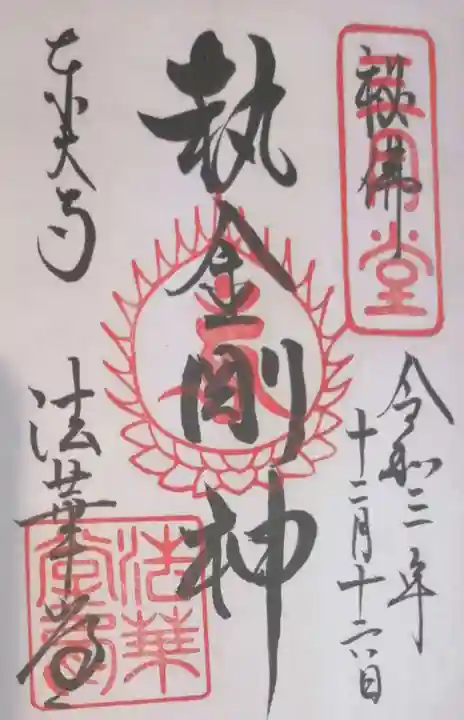 三月堂
秘佛
令和三年
十二月十六日
執金剛神
東大寺
法華堂
法華